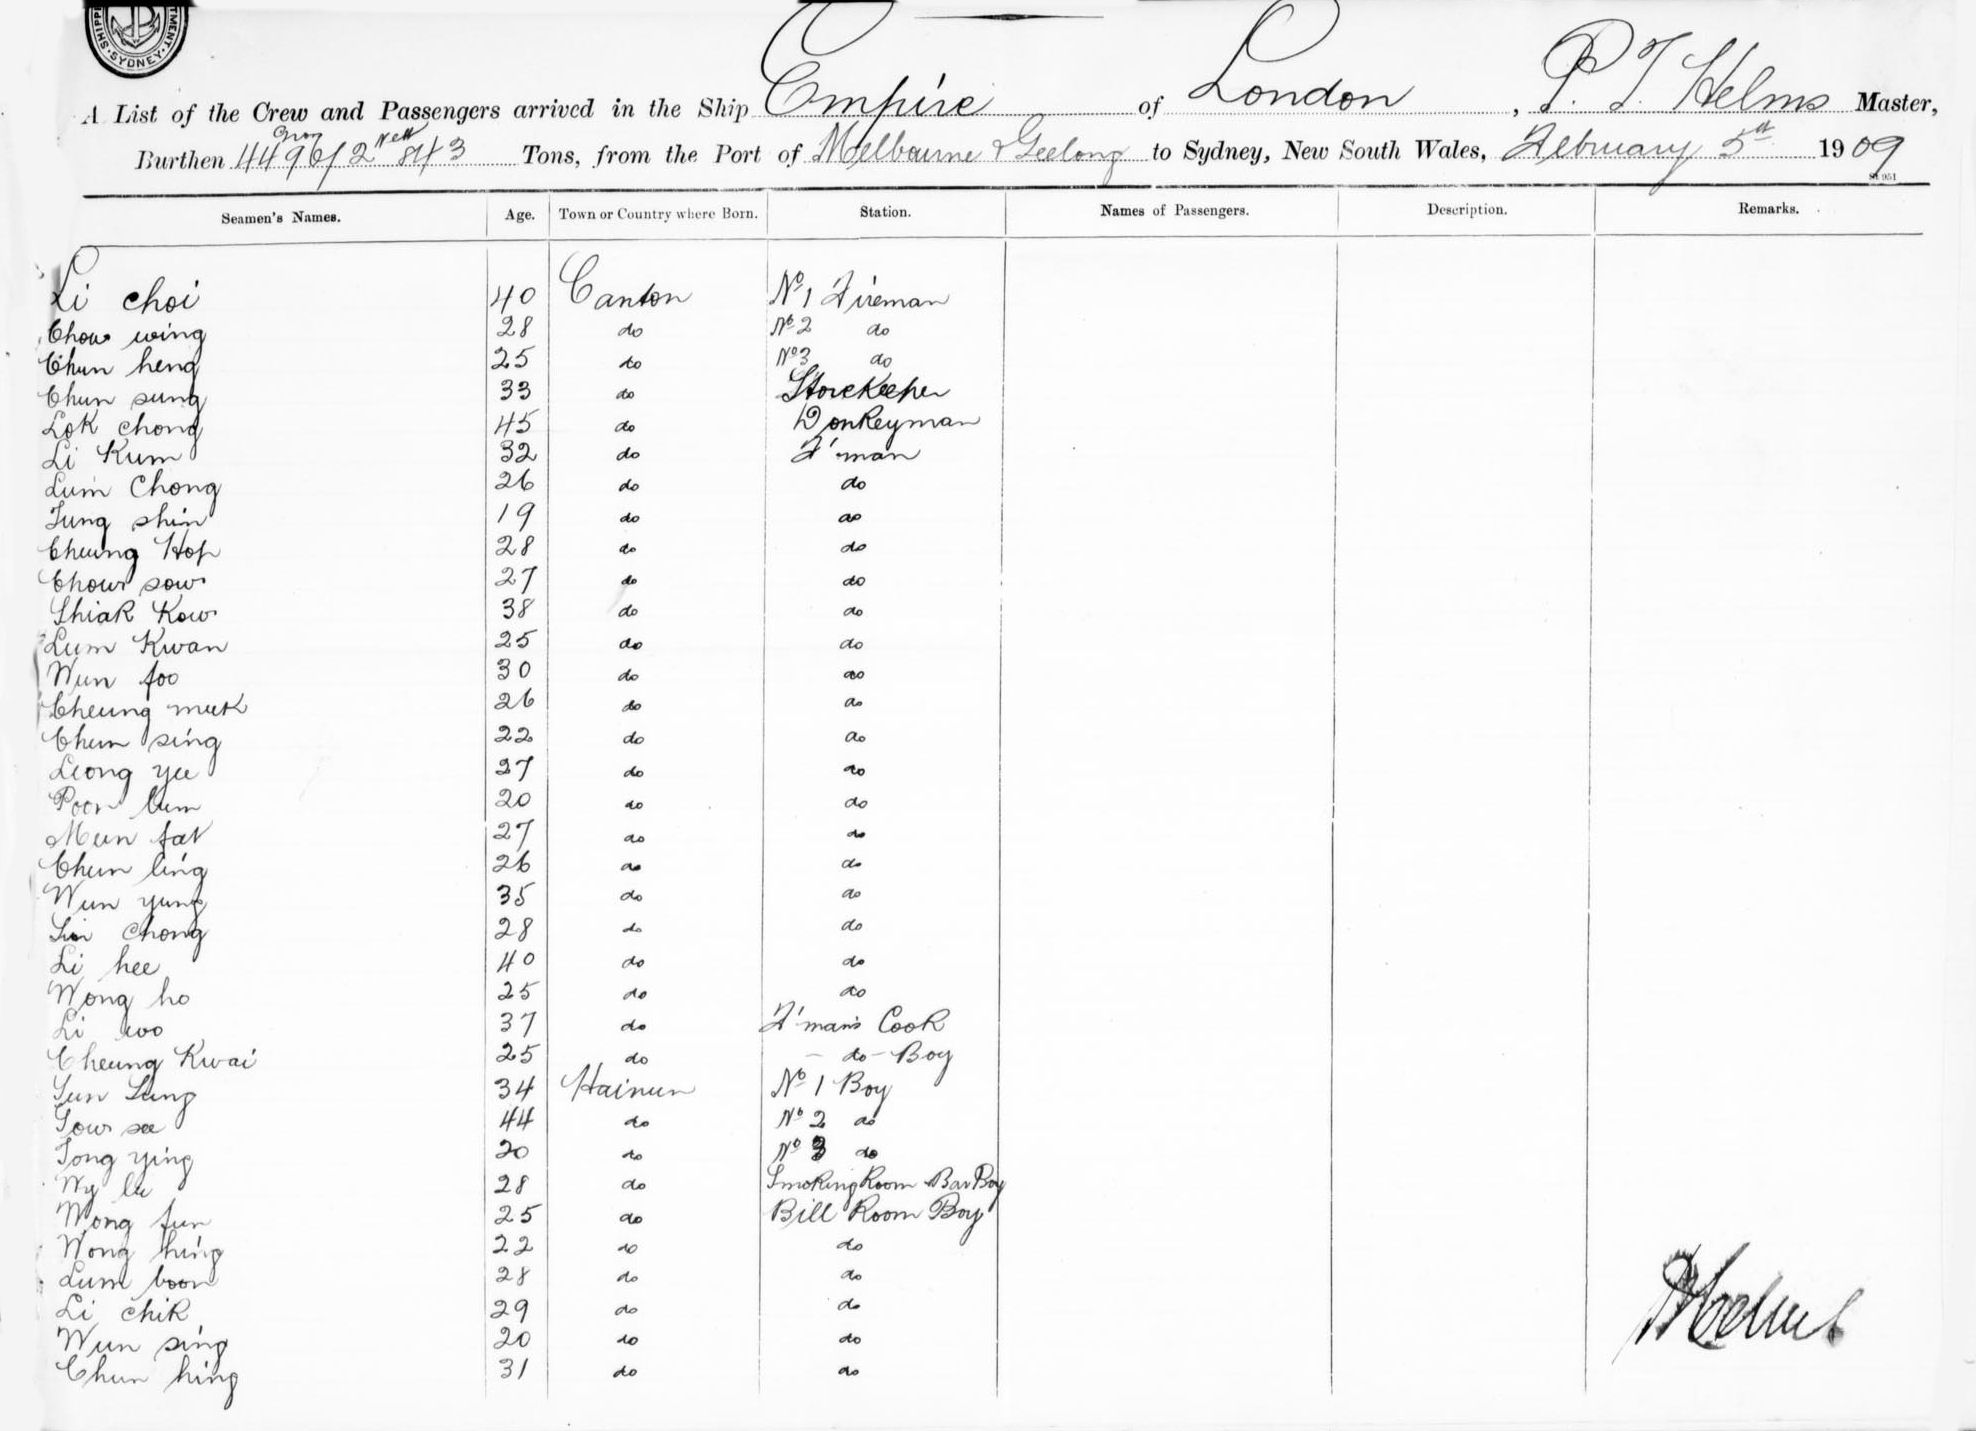 SHIPPI MENT · SYDNEY ·
A List of the Crew and Passengers arrived in the Ship Empire of London, P. T. Helms Master,
Burthen 4496 Gross / 2843 Nett Tons, from the Port of Melbourne & Geelong to Sydney, New South Wales, February 5th 1909
St 951
Seamen's Names. Age. Town or Country where Born. Station. Names of Passengers. Description. Remarks.
Li choi 40 Canton No 1 Fireman
Chow wing 28 do No 2 do
Chun heng 25 do No 3 do
Chun sung 33 do Storekeeper
Lok chong 45 do Donkeyman
Li Kum 32 do F'man
Lum Chong 26 do do
Tung shin 19 do do
Cheung Hop 28 do do
Chow sow 27 do do
Shiak Kow 38 do do
Lum Kwan 25 do do
Wun foo 30 do do
Cheung muk 26 do do
Chun sing 22 do do
Leong yee 27 do do
Poon lum 20 do do
Mun fat 27 do do
Chun ling 26 do do
Wun yung 35 do do
Chong 28 do do
Li hee 40 do do
Wong ho 25 do do
Li woo 37 do F'man's Cook
Cheung Kwai 25 do - do - Boy
Sun Sang 34 Hainun No 1 Boy
Sow see 44 do No 2 do
Tong ying 20 do No 3 do
Wy lu 28 do Smoking Room Bar Boy
Wong fun 25 do Bill Room Boy
Wong hing 22 do do
Lum boon 28 do do
Li chik 29 do do
Wun sing 20 do do
Chun hing 31 do do
P T Helms